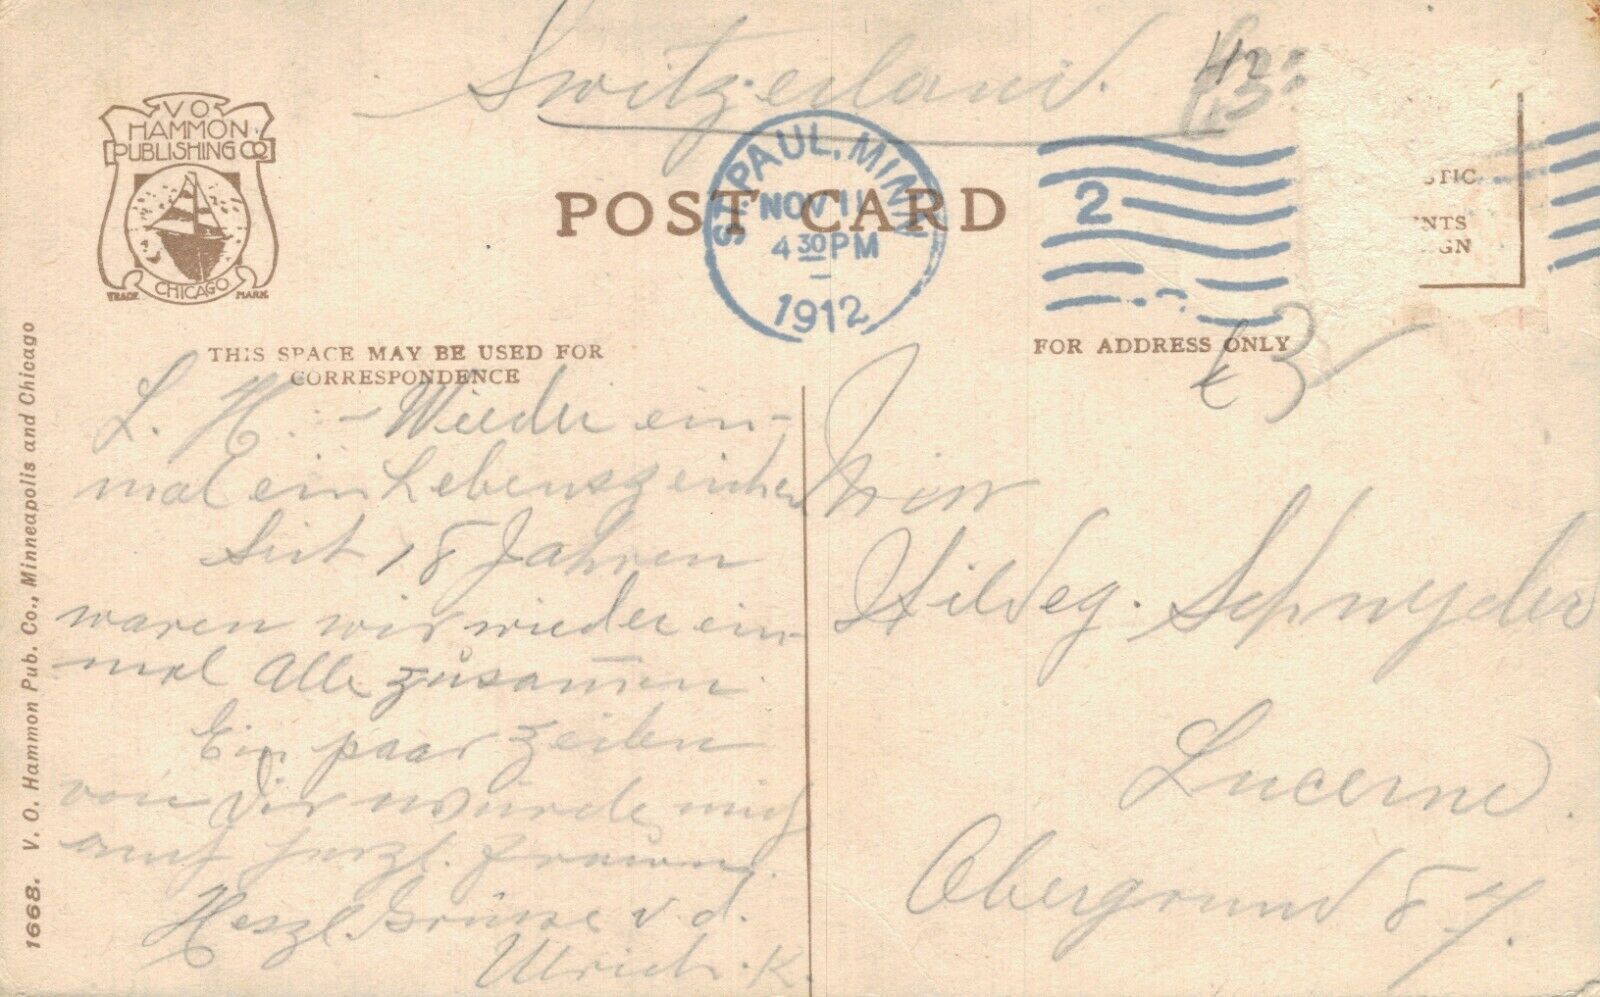 Switzerland.
V O
HAMMON
PUBLISHING CO
CHICAGO
TRADE MARK
POST CARD
ST. PAUL, MINN.
NOV 11
4 30 PM
1912
2
STIC
NTS
GN
THIS SPACE MAY BE USED FOR
CORRESPONDENCE
FOR ADDRESS ONLY
L. H. – Wieder ein-
mal ein Lebenszeichen
Seit 18 Jahren
waren wir wieder ein-
mal Alle zusam̄en.
Ein paar Zeilen
von Dir würde mich
auch herzl. freuen.
Herzl. Grüsse v. d.
Ulrich. K.
Miss
Hildeg. Schnyder
Lucerne.
Obergrund 87.
1668. V. O. Hammon Pub. Co., Minneapolis and Chicago